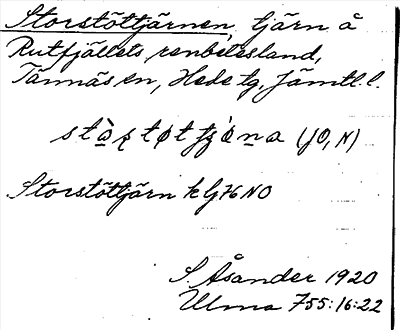 Storstöttjärnen, tjärn å
Rutfjällets renbetesland,
Tännäs sn, Hede tg, Jämtl. l.
(JO, N)
Storstöttjärn k GK NO
S. Åsander 1920
Ulma 755:16:22